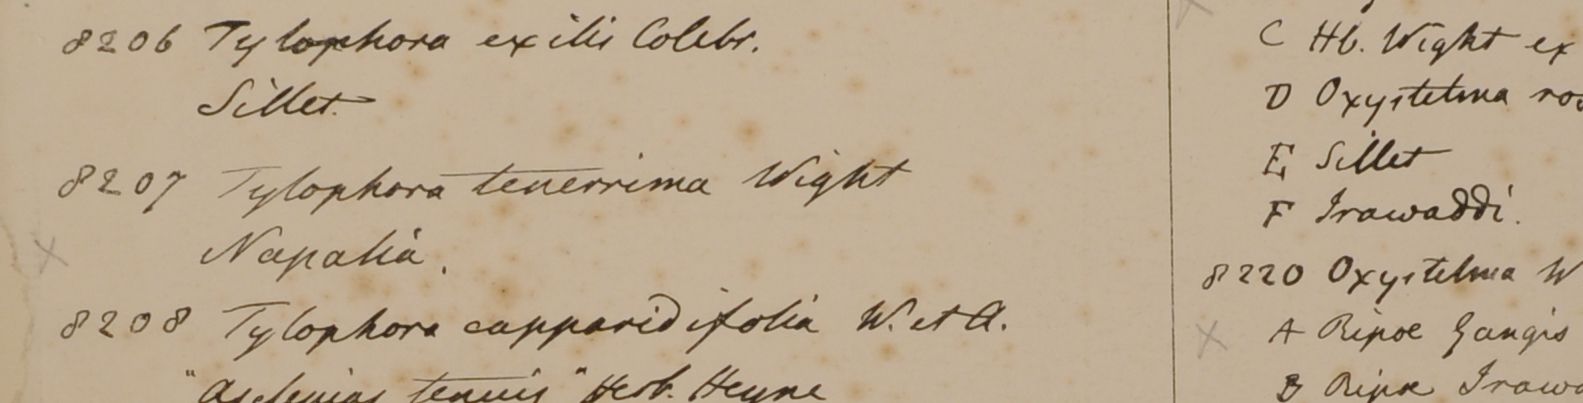 8206 Tylophora exilis Colebr.
Sillet.
8207 Tylophora tenerrima Wight
Napalia.
8208 Tylophora capparidifolia W. et A.
"Asclepias tenuis" Herb. Heyne
C Hb. Wight ex
D Oxystelma
E Sillet
F Irawaddi.
8220 Oxystelma W
A Ripae Gangis
B Ripae Irawa